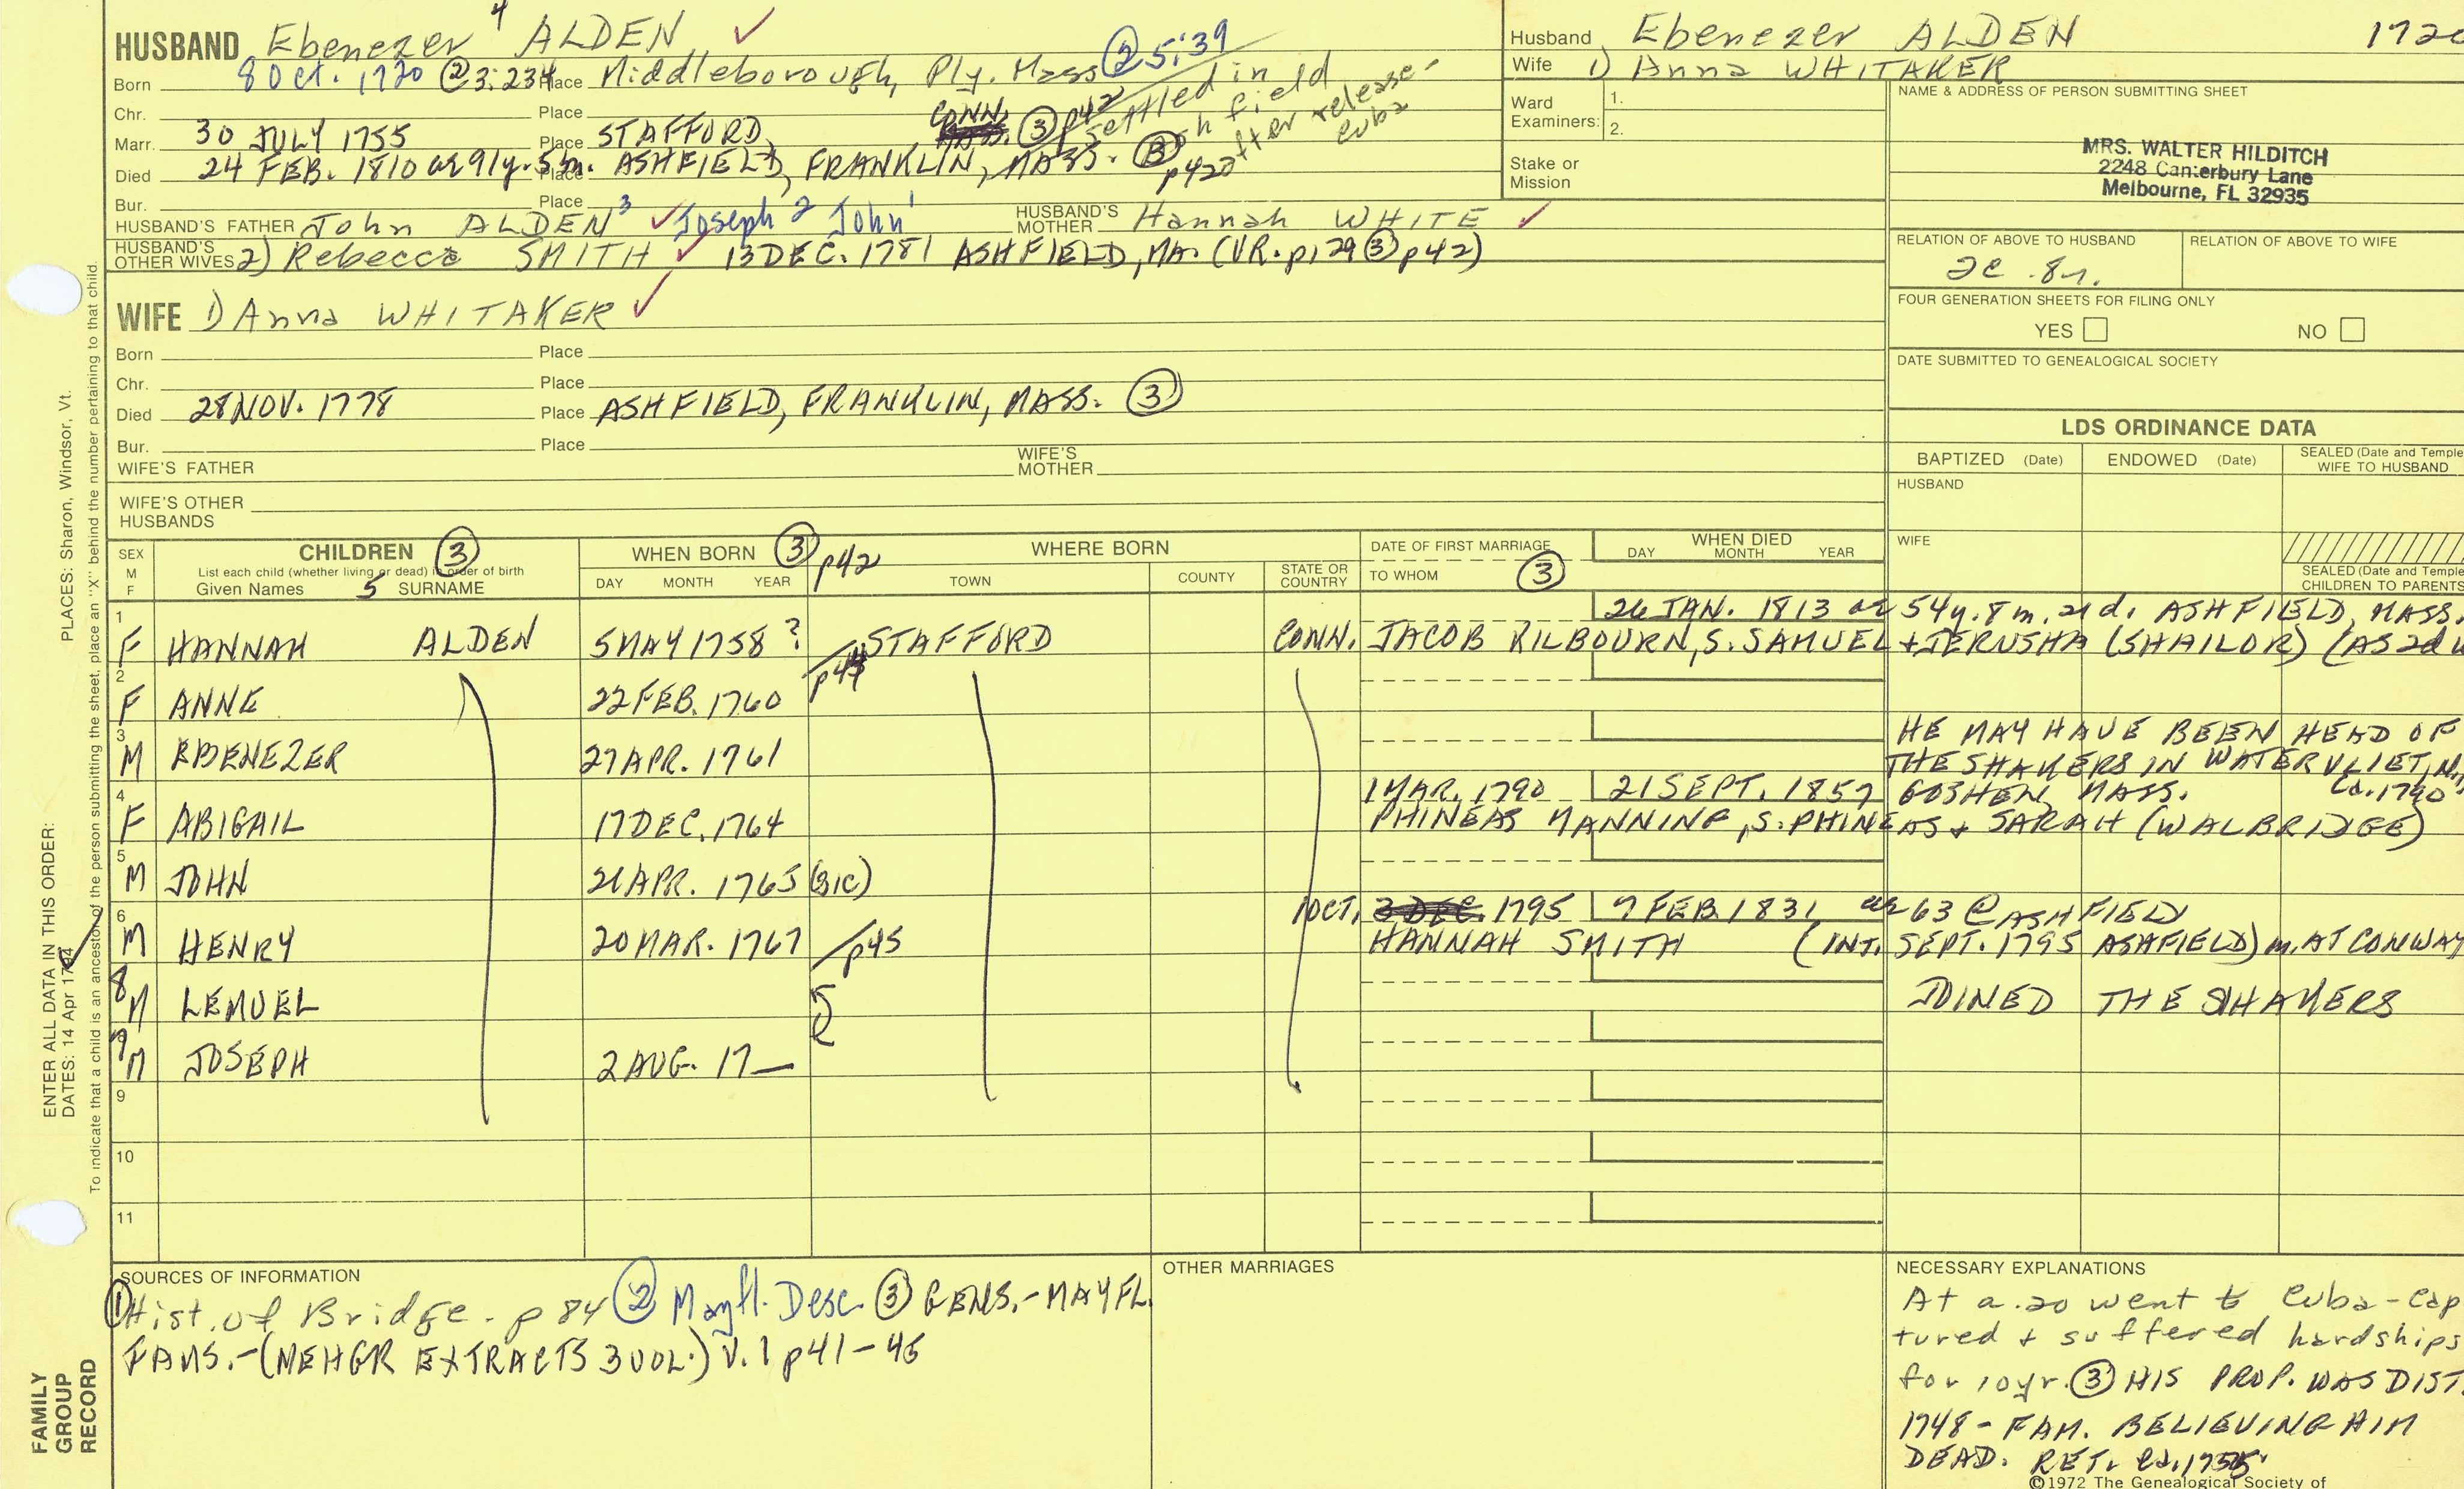 HUSBAND Ebenezer 4 ALDEN ✓
Born 8 Oct. 1720 ② 3:234 Place Middleborough, Ply. Mass ② 5:39
Chr. Place
Marr. 30 JULY 1755 Place STAFFORD, CONN. ③ p42
Died 24 FEB. 1810 ae 91y. 5m. Place ASHFIELD, FRANKLIN, MASS. ③ p420
settled in
after release - Cuba
Bur. Place
HUSBAND'S FATHER John ALDEN 3 ✓ Joseph 2 John 1 HUSBAND'S MOTHER Hannah WHITE ✓
HUSBAND'S OTHER WIVES 2) Rebecca SMITH ✓ 13 DEC. 1781 ASHFIELD, MA. (VR. p129 ③ p42)
WIFE 1) Anna WHITAKER ✓
Born Place
Chr. Place
Died 28 NOV. 1778 Place ASHFIELD, FRANKLIN, MASS. ③
Bur. Place
WIFE'S FATHER WIFE'S MOTHER
WIFE'S OTHER HUSBANDS
Husband Ebenezer ALDEN 172
Wife 1) Anna WHITAKER
Ward Examiners: 1. 2.
Stake or Mission
NAME & ADDRESS OF PERSON SUBMITTING SHEET
MRS. WALTER HILDITCH
2248 Canterbury Lane
Melbourne, FL 32935
RELATION OF ABOVE TO HUSBAND RELATION OF ABOVE TO WIFE
2c .8r.
FOUR GENERATION SHEETS FOR FILING ONLY
YES NO
DATE SUBMITTED TO GENEALOGICAL SOCIETY
LDS ORDINANCE DATA
BAPTIZED (Date) ENDOWED (Date) SEALED (Date and Temple WIFE TO HUSBAND
HUSBAND
WIFE
SEALED (Date and Temple CHILDREN TO PARENTS
SEX M F CHILDREN ③ WHEN BORN ③ p42 WHERE BORN DATE OF FIRST MARRIAGE WHEN DIED
List each child (whether living or dead) in order of birth
Given Names 5 SURNAME DAY MONTH YEAR TOWN COUNTY STATE OR COUNTRY TO WHOM ③ DAY MONTH YEAR
1 26 JAN. 1813 ae 54y. 8m. 21d. ASHFIELD, MASS.
F HANNAH ALDEN 5 MAY 1758? p44 STAFFORD CONN. JACOB KILBOURN, S. SAMUEL + JERUSHA (SHAILOR) (AS 2d w
2 F ANNE 22 FEB. 1760
3 M EBENEZER 27 APR. 1761 HE MAY HAVE BEEN HEAD OF
THE SHAKERS IN WATERVLIET, N.
Ca. 1790
4 1 MAR. 1790 21 SEPT. 1857 GOSHEN, MASS.
F ABIGAIL 17 DEC. 1764 PHINEAS MANNING, S. PHINEAS + SARAH (WALBRIDGE)
5 M JOHN 21 APR. 1765 (SIC)
6 1 OCT. 1795 7 FEB 1831 ae 63 @ ASHFIELD
M HENRY 20 MAR. 1767 p45 HANNAH SMITH (INT. SEPT. 1795 ASHFIELD) m. AT CONWAY
8 M LEMUEL JOINED THE SHAKERS
7 M JOSEPH 2 AUG. 17—
9
10
11
SOURCES OF INFORMATION
① Hist. of Bridge. - p 84 ② Mayfl. Desc. ③ GENS. - MAYFL.
FAMS. - (NEHGR EXTRACTS 3 VOL.) V. 1 p41-45
OTHER MARRIAGES
NECESSARY EXPLANATIONS
At a. 20 went to Cuba - cap
tured + suffered hardships
for 10yr. ③ HIS PROP. WAS DIST.
1748 - FAM. BELIEVING HIM
DEAD. RET. Ca. 1755
©1972 The Genealogical Society of
ENTER ALL DATA IN THIS ORDER:
DATES: 14 Apr 1794 PLACES: Sharon, Windsor, Vt.
To indicate that a child is an ancestor of the person submitting the sheet, place an "X" behind the number pertaining to that child.
FAMILY GROUP RECORD